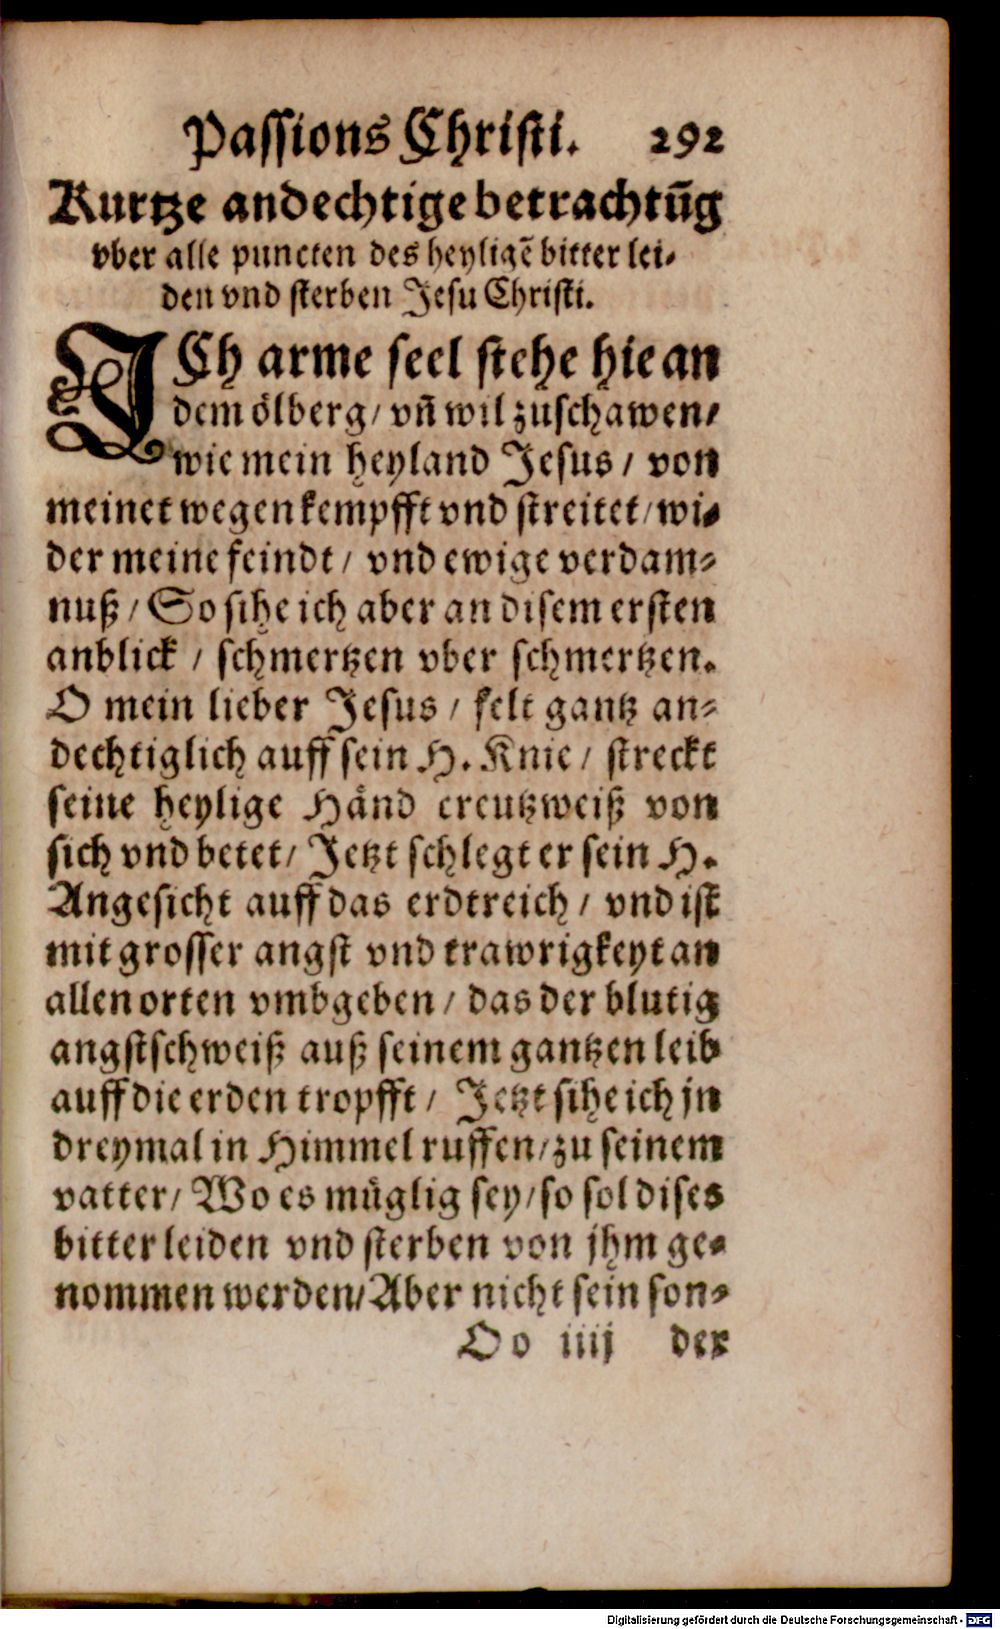 Passions Christi. 292
Kurtze andechtige betrachtūg
vber alle puncten des heyligē bitter lei-
den vnd sterben Jesu Christi.
ICh arme seel stehe hie an
dem ölberg/ vn̄ wil zuschawen/
wie mein heyland Jesus/ von
meinet wegen kempfft vnd streitet/ wi-
der meine feindt/ vnd ewige verdam-
nuß/ So sihe ich aber an disem ersten
anblick/ schmertzen vber schmertzen.
O mein lieber Jesus/ felt gantz an-
dechtiglich auff sein H. Knie/ streckt
seine heylige Händ creutzweiß von
sich vnd betet/ Jetzt schlegt er sein H.
Angesicht auff das erdtreich/ vnd ist
mit grosser angst vnd trawrigkeyt an
allen orten vmbgeben/ das der blutig
angstschweiß auß seinem gantzen leib
auff die erden tropfft/ Jetzt sihe ich jn
dreymal in Himmel ruffen/ zu seinem
vatter/ Wo es müglig sey/ so sol dises
bitter leiden vnd sterben von jhm ge-
nommen werden/ Aber nicht sein son-
Oo iiij der
Digitalisierung gefördert durch die Deutsche Forschungsgemeinschaft - DFG